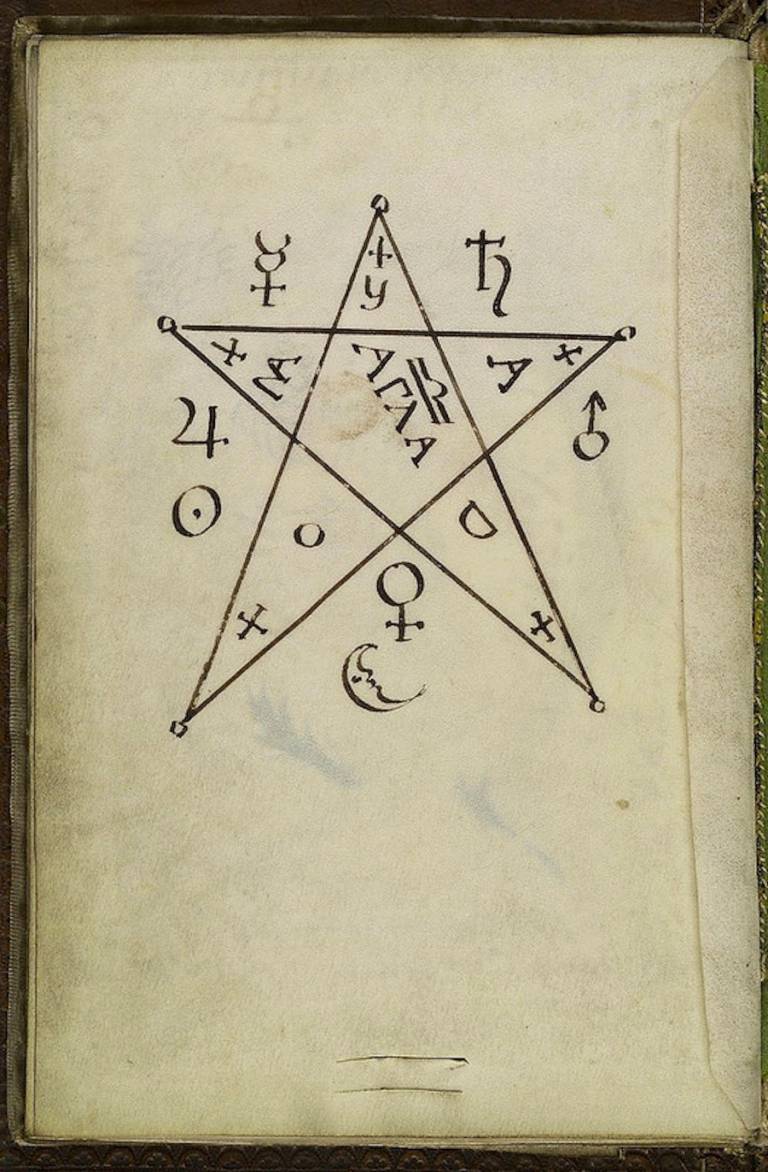 ☿ ♄
+
y
+ Σ A +
ΑΓΛΑ
♎
♃ ♂
☉ o D
♀
+ +
☾